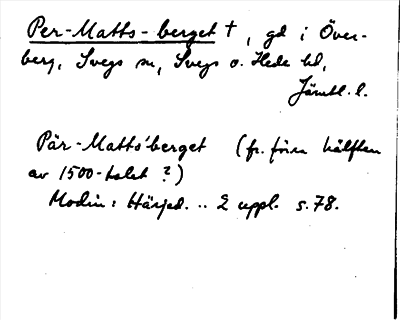 Per-Matts-berget †, gd i Över-
berg, Svegs sn, Svegs o. Hede hd,
Jämtl. l.
Pär-Matts'berget (fr. förra hälften
av 1500-talet ?)
Modin: Härjed. .. 2 uppl. s. 78.